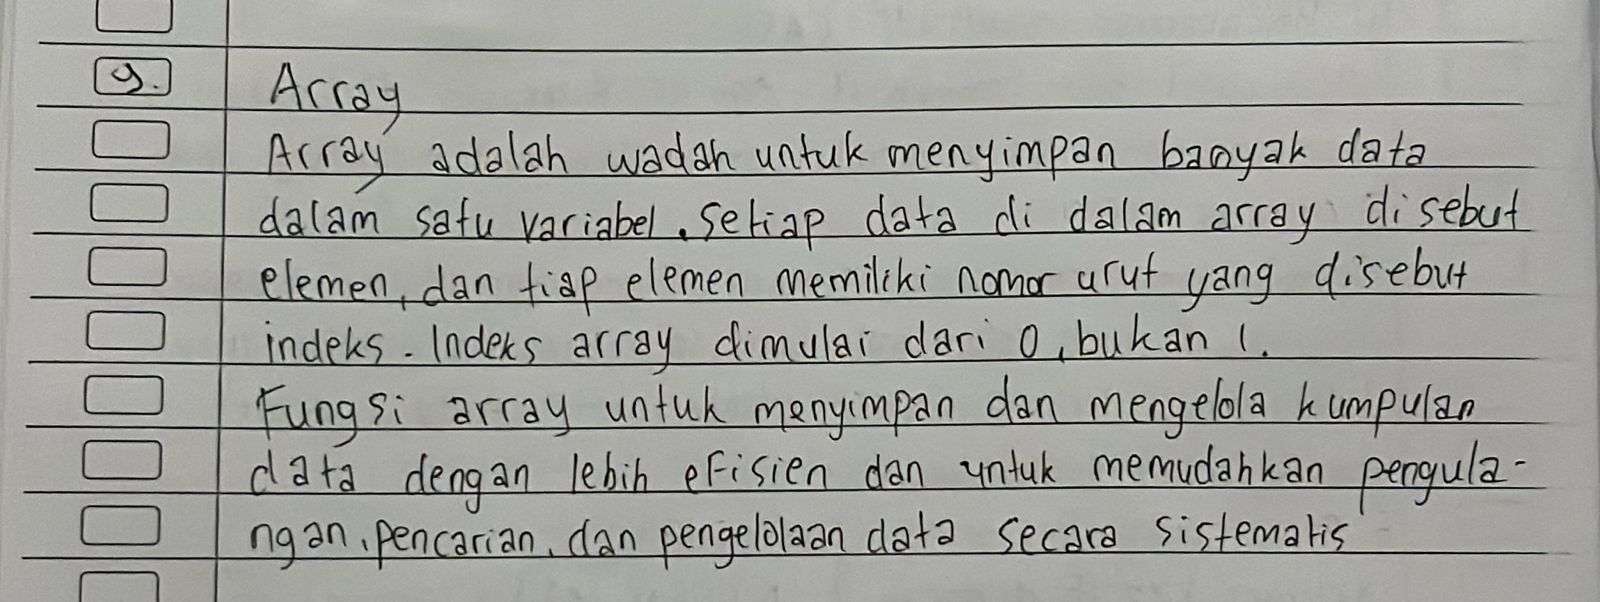 9. Array
Array adalah wadah untuk menyimpan banyak data
dalam satu variabel. Setiap data di dalam array disebut
elemen, dan tiap elemen memiliki nomor urut yang disebut
indeks. Indeks array dimulai dari 0, bukan 1.
Fungsi array untuk menyimpan dan mengelola kumpulan
data dengan lebih efisien dan untuk memudahkan pengula-
ngan, pencarian, dan pengelolaan data secara sistematis